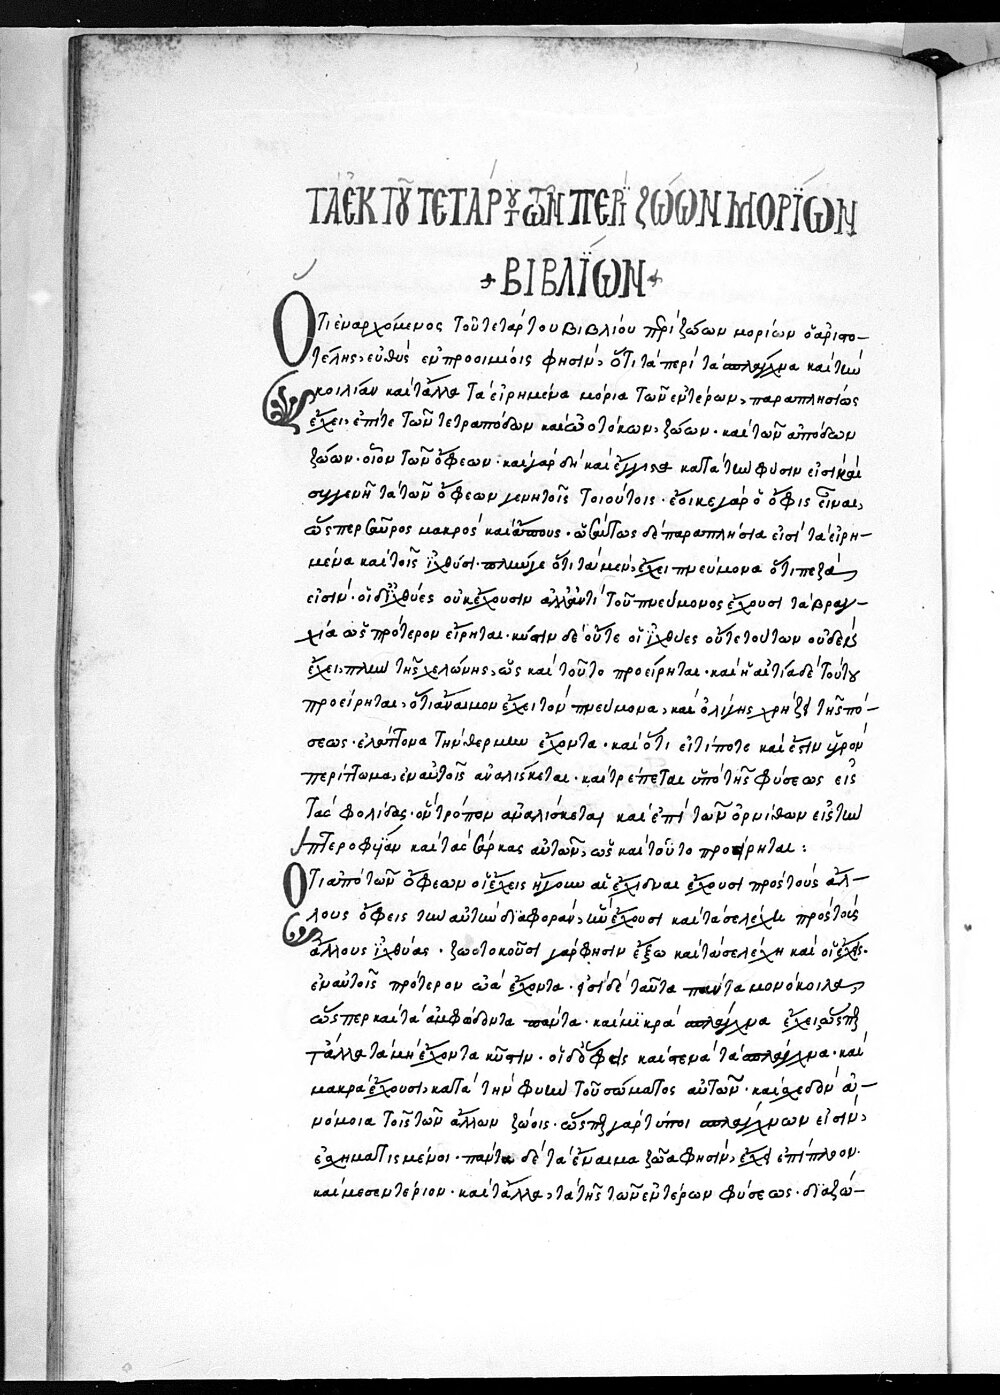 ΤΑ ἘΚ ΤΟΥ͂ ΤΕΤΆΡΤΟΥ ΤΩ͂Ν ΠΕΡῚ ΖΏΩΝ ΜΟΡΊΩΝ
ΒΙΒΛΊΩΝ
Ὅτι ἐναρχόμενος τοῦ τετάρτου βιβλίου περὶ ζώων μορίων ὁ ἀριστο-
τέλης, εὐθὺς ἐν προοιμίοις φησὶν, ὅτι τὰ περὶ τὰ σπλάγχνα καὶ τὴν
κοιλίαν καὶ τἄλλα τὰ εἰρημένα μόρια τῶν ἐντέρων, παραπλησίως
ἔχει, ἐπί τε τῶν τετραπόδων καὶ ὠοτόκων, ζώων· καὶ τῶν ἀπόδων
ζώων· οἷον τῶν ὄφεων· καὶ γὰρ δὴ καὶ ἔγγιστα κατὰ τὴν φύσιν εἰσὶ καὶ
συγγενῆ τὰ τῶν ὄφεων γένη τοῖς τοιούτοις· ἔοικε γὰρ ὁ ὄφις εἶναι,
ὥσπερ σαῦρος μακρὸς καὶ ἄπους· ὡσαύτως δὲ παραπλήσια εἰσὶ τὰ εἰρη-
μένα καὶ τοῖς ἰχθύσι· πλήν γε ὅτι τὰ μὲν, ἔχει πνεύμονα ὅτι πεζὰ
εἰσὶν· οἱ δ' ἰχθύες οὐκ ἔχουσιν ἀλλ' ἀντὶ τοῦ πνεύμονος ἔχουσι τὰ βραγ-
χία ὡς πρότερον εἴρηται· κύστιν δὲ οὔτε οἱ ἰχθύες οὔτε τούτων οὐδεὶς
ἔχει, πλὴν τῆς χελώνης, ὡς καὶ τοῦτο προείρηται· καὶ ἡ αἰτία δὲ τούτου
προείρηται, ὅτι ἄναιμον ἔχει τὸν πνεύμονα, καὶ ὀλίγης χρήζει τῆς πό-
σεως· ἐλάττονα τὴν θερμὴν ἔχοντα· καὶ ὅτι εἴ τί ποτε καὶ ἔστιν ὑγρὸν
περίττωμα, ἐν αὐτοῖς ἀναλίσκεται· καὶ τρέπεται ὑπὸ τῆς φύσεως εἰς
τὰς φολίδας· ὃν τρόπον ἀναλίσκεται καὶ ἐπὶ τῶν ὀρνίθων εἰς τὴν
πτεροφυΐαν καὶ τὰς σάρκας αὐτῶν, ὡς καὶ τοῦτο προείρηται:
Ὅτι ἀπὸ τῶν ὄφεων οἱ ἔχεις ἤγουν αἱ ἔχιδναι ἔχουσι πρὸς τοὺς ἄλ-
λους ὄφεις τὴν αὐτὴν διαφορὰν, ἣν ἔχουσι καὶ τὰ σελάχη πρὸς τοὺς
ἄλλους ἰχθύας· ζωοτοκοῦσι γὰρ φησὶν ἔξω καὶ τὰ σελάχη καὶ οἱ ἔχεις·
ἐν αὐτοῖς πρότερον ὠὰ ἔχοντα· εἰσὶ δὲ ταῦτα πάντα μονόκοιλα,
ὥσπερ καὶ τὰ ἀμφώδοντα πάντα· καὶ μικρὰ σπλάγχνα ἔχει, ὥσπερ
τἄλλα τὰ μὴ ἔχοντα κύστιν· οἱ δ' ὄφεις καὶ στενὰ τὰ σπλάγχνα· καὶ
μακρὰ ἔχουσι, κατὰ τὴν φύσιν τοῦ σώματος αὐτῶν· καὶ σχεδὸν ἀ-
νόμοια τοῖς τῶν ἄλλων ζώοις· ὥσπερ γὰρ τύποι σπλάγχνων εἰσὶν,
ἐσχηματισμένοι· πάντα δὲ τὰ ἔναιμα ζῶα φησὶν, ἔχει ἐπίπλοον·
καὶ μεσεντέριον· καὶ τἄλλα, τὰ τῆς τῶν ἐντέρων φύσεως· διαζώ-